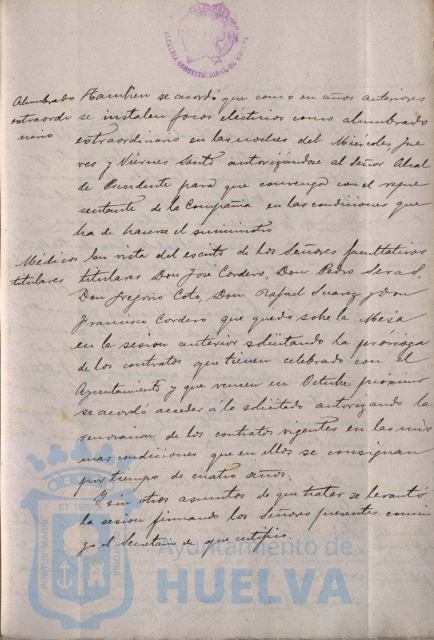 ALCALDIA CONSTITUCIONAL DE HUELVA
Alumbrado
extraordi
nario
Tambien se acordó que como en años anteriores
se instalen focos eléctricos como alumbrado
extraordinario en las noches del Miércoles, Jue
ves y Viernes Santo autorizándose al Señor Alcal
de Presidente para que convenga con el repre
sentante de la Compañia en las condiciones que
ha de hacerse el suministro
Médicos
titulares
En vista del escrito de los Señores facultativos
titulares Don José Cordero, Don Pedro Seras,
Don Gregorio Coto, Don Rafael Suarez y Don
Francisco Cordero que quedó sobre la Mesa
en la sesion anterior solicitando la prórroga
de los contratos que tienen celebrado con el
Ayuntamiento y que vencen en Octubre próximo
se acordó acceder á lo solicitado autorizando la
renovacion de los contratos vigentes en las mis
mas condiciones que en ellos se consignan
por tiempo de cuatro años.
Y sin otros asuntos de que tratar se levantó
la sesion firmando los Señores presentes conmi
go el Secretario de que certifico.
PORTUS MARIS
ET TERRÆ
Ayuntamiento de
HUELVA